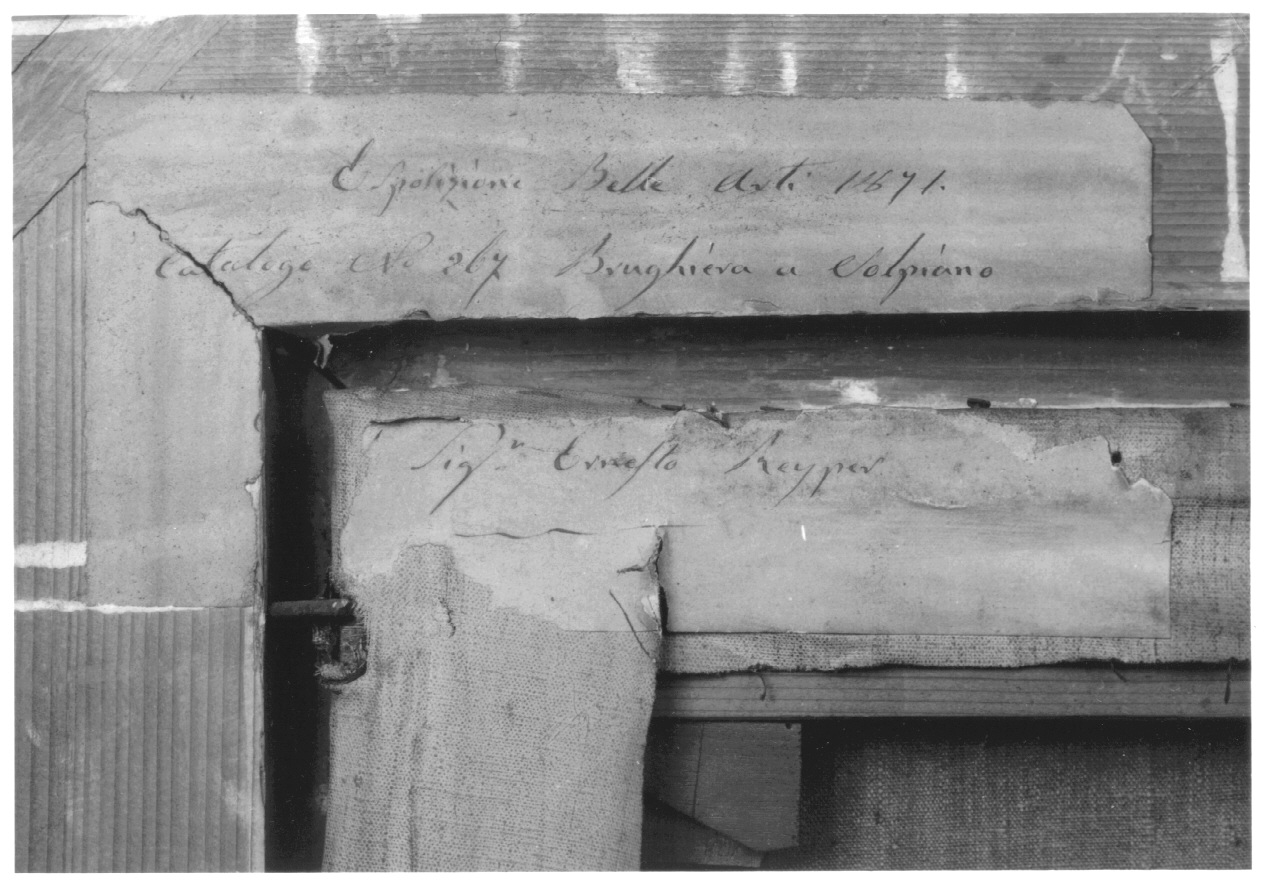 Esposizione Belle Arti 1871.
Catalogo No 267 Brughiera a Volpiano
Sigr. Ernesto Reyper